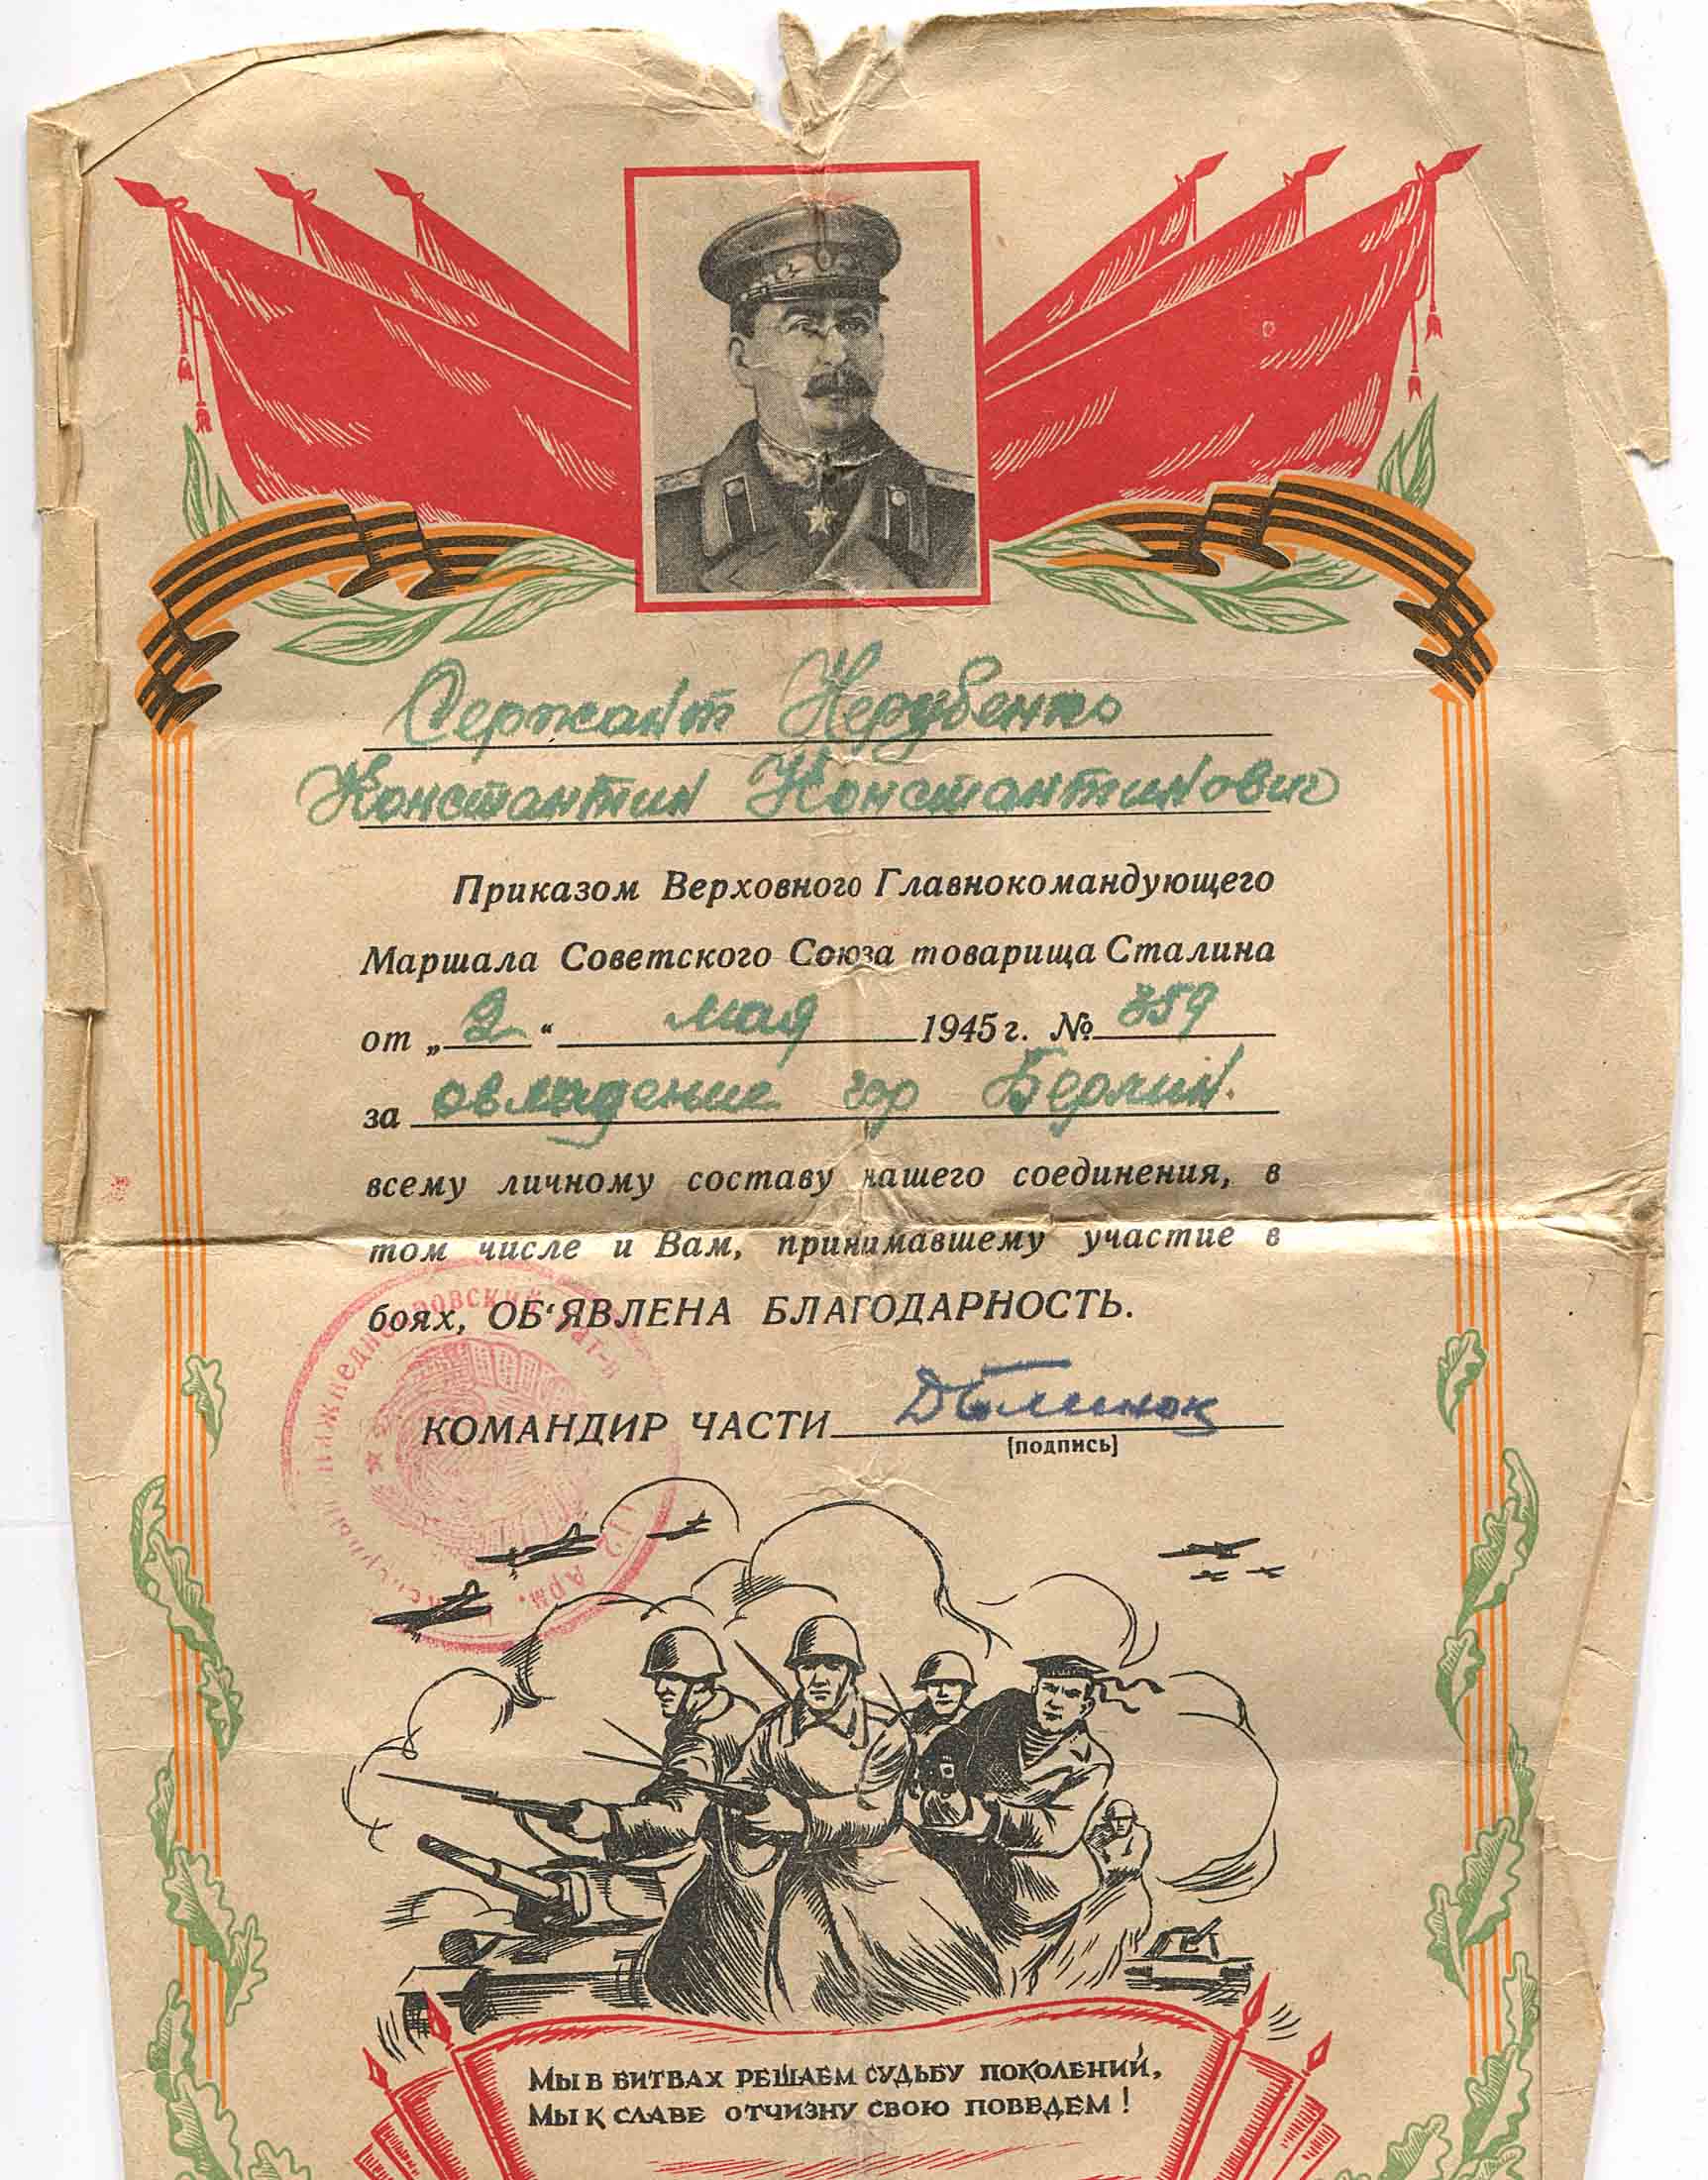 Сержант Нерубенко
Константин Константинович
Приказом Верховного Главнокомандующего
Маршала Советского Союза товарища Сталина
от „2“ мая 1945 г. № 359
за овладение гор Берлин.
всему личному составу нашего соединения, в
том числе и Вам, принимавшему участие в
боях, ОБ‘ЯВЛЕНА БЛАГОДАРНОСТЬ.
КОМАНДИР ЧАСТИ
[подпись]
Арм.
МЫ В БИТВАХ РЕШАЕМ СУДЬБУ ПОКОЛЕНИЙ,
МЫ К СЛАВЕ ОТЧИЗНУ СВОЮ ПОВЕДЕМ!